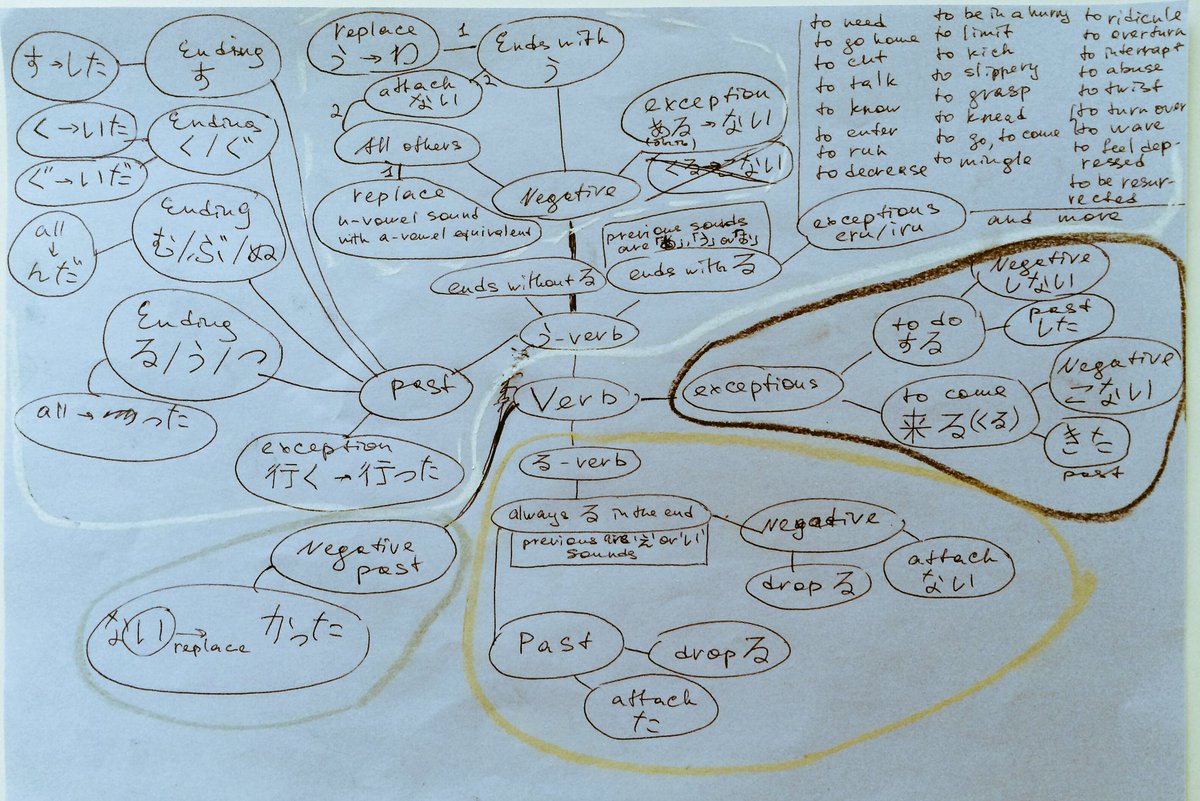 す→した
Ending
す
く→いた
ぐ→いだ
Endings
く/ぐ
all
↓
んだ
Ending
む/ぶ/ぬ
Ending
る/う/つ
all→った
past
exception
行く→行った
replace
う→わ
1
Ends with
う
2
attach
ない
2
All others
1
replace
u-vowel sound
with a-vowel equivalent
Negative
exception
ある→ない
くる→ない
ends without る
previous sounds
are
ends with る
exceptions
eru/iru
to need
to go home
to cut
to talk
to know
to enter
to run
to decrease
to be in a hurry
to limit
to kick
to slippery
to grasp
to knead
to go, to come
to mingle
to ridicule
to overturn
to interrupt
to abuse
to twist
to turn over
to wave
to feel dep-
ressed
to be resur-
rected
and more
う-verb
Verb
exceptions
to do
する
Negative
しない
past
した
to come
来る(くる)
Negative
こない
きた
past
る-verb
always る in the end
previous are 'え' or 'い'
sounds
Negative
drop る
attach
ない
Past
drop る
attach
た
Negative
past
ない→replace かった